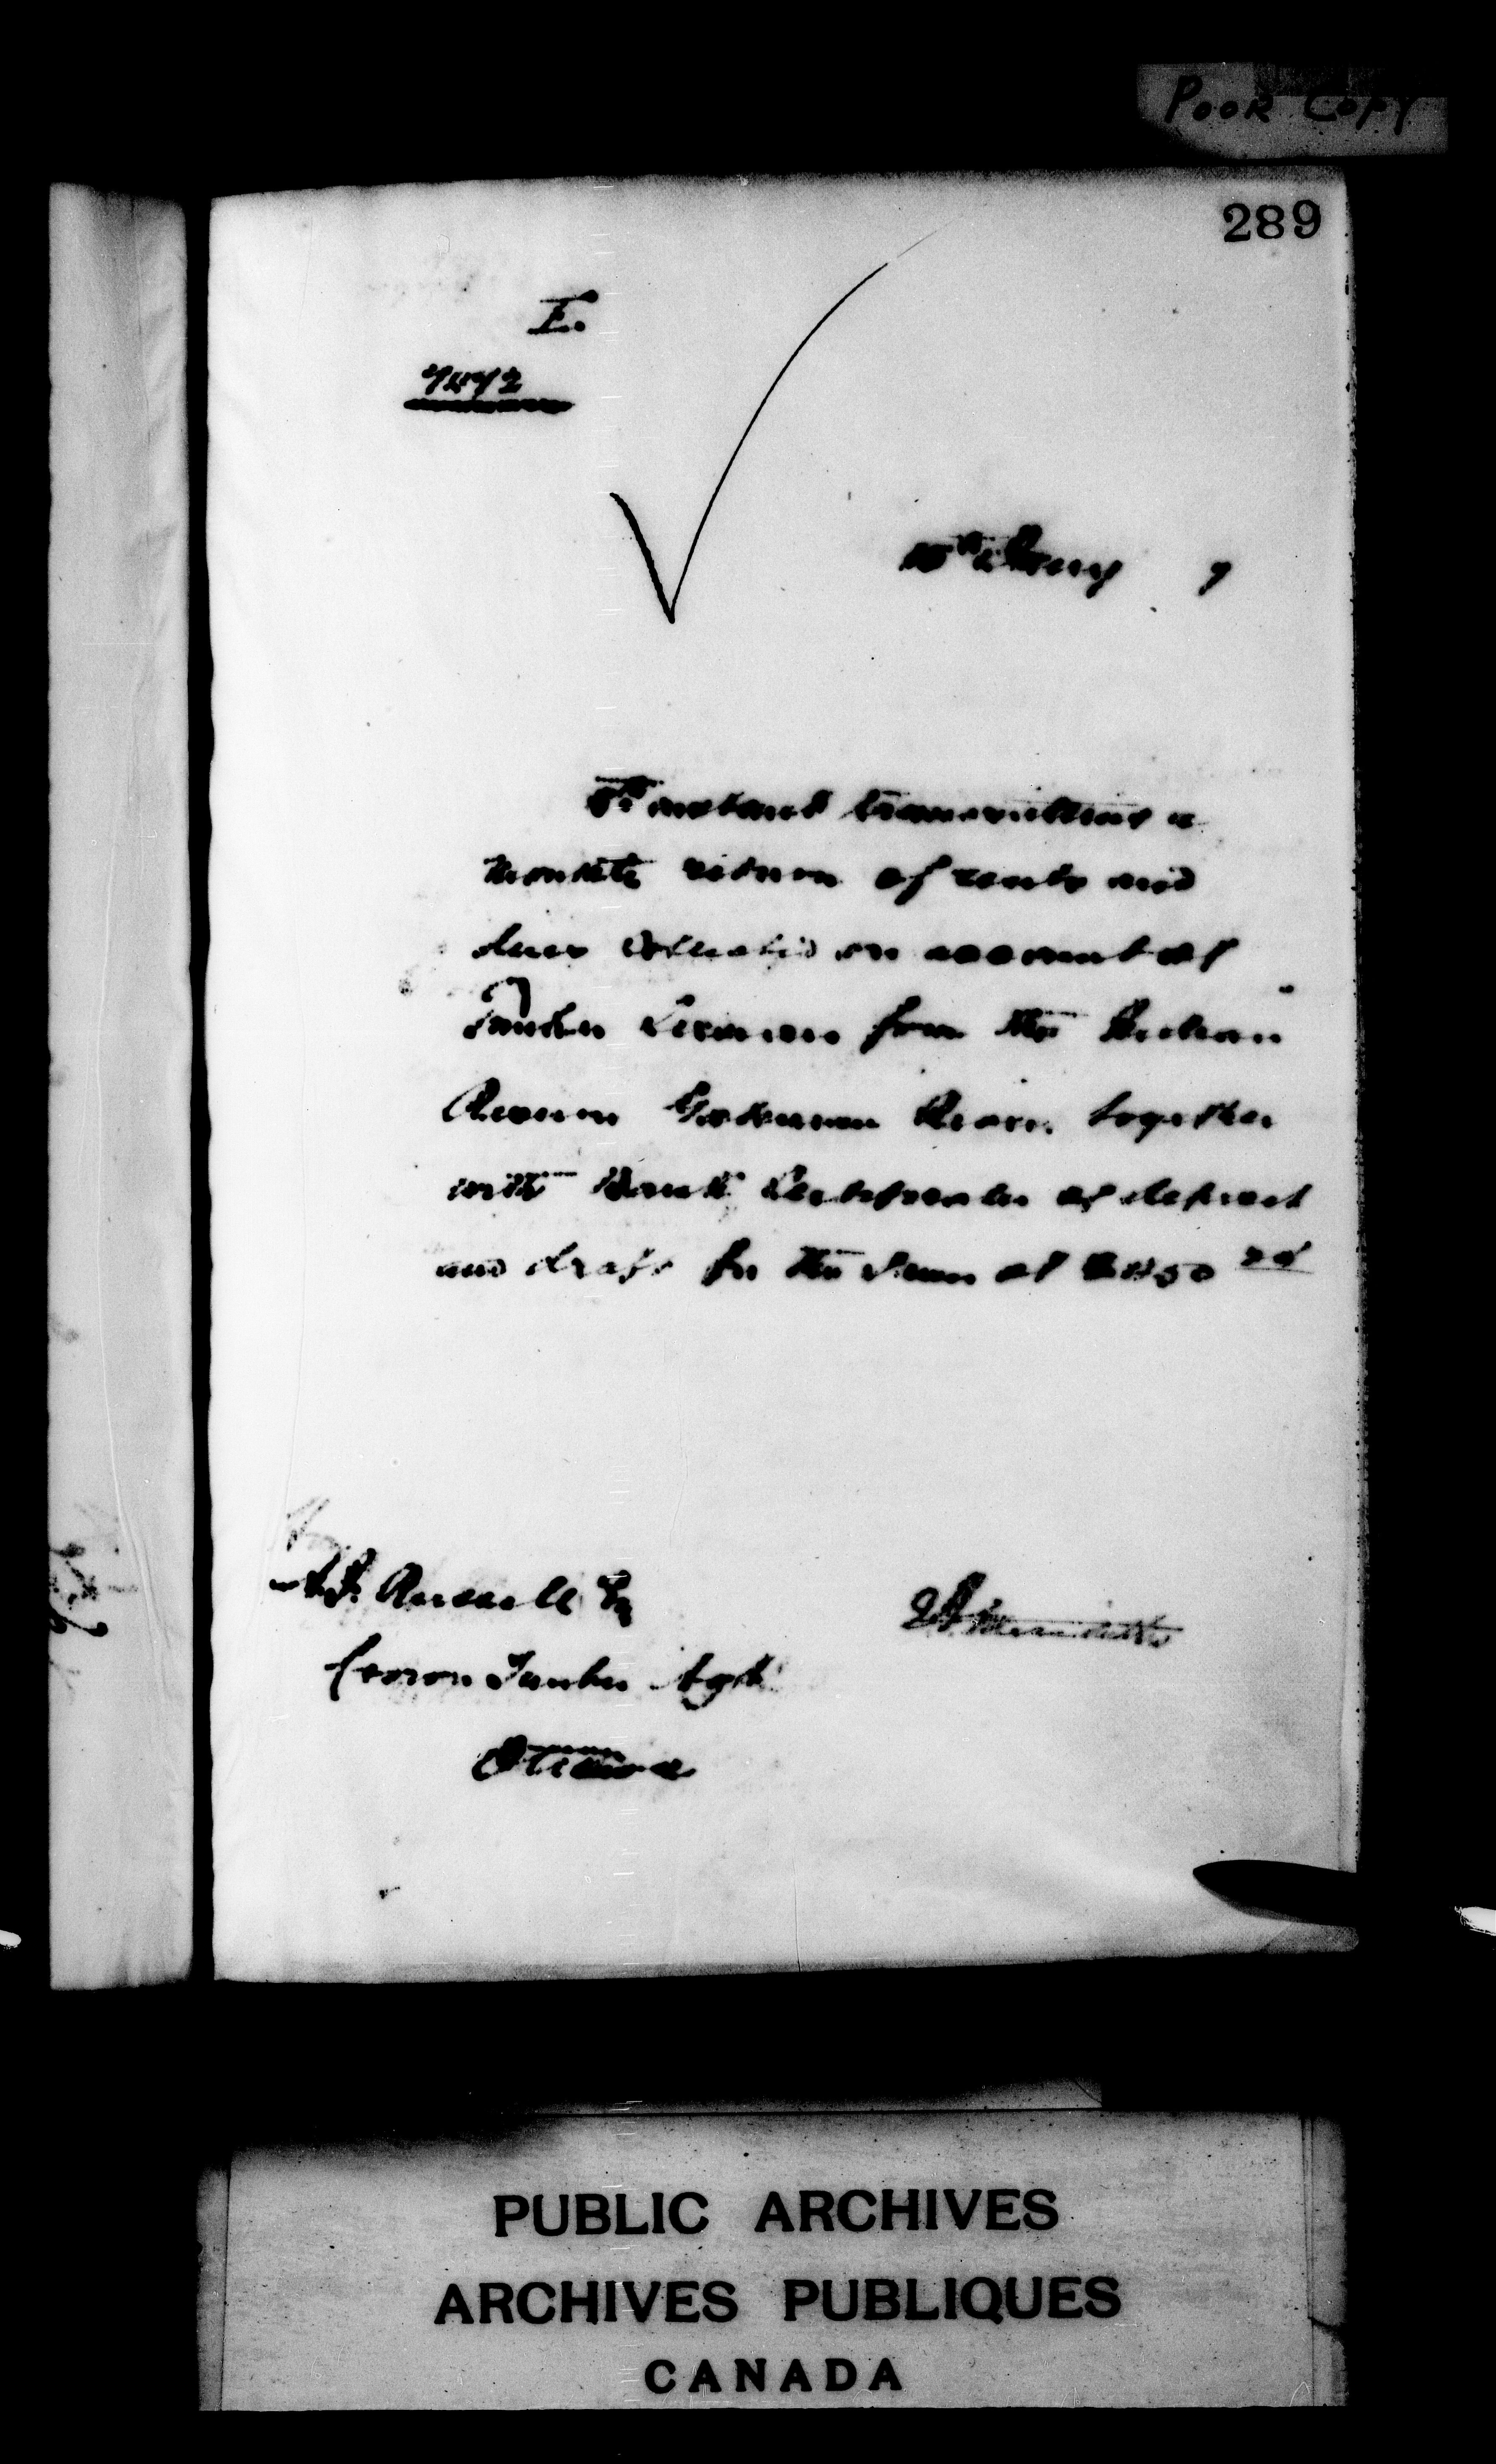 POOR COPY
289
7472
5th instant transmitting a
monthly return of rents and
dues collected on account of
Timber Licenses from the Indian
Reserve Gatineau River, together
with Bank Certificate of deposit
and draft for the Sum of
A.J. Russell Esq
Crown Timber Agt
Ottawa
E. A. Meredith
PUBLIC ARCHIVES
ARCHIVES PUBLIQUES
CANADA